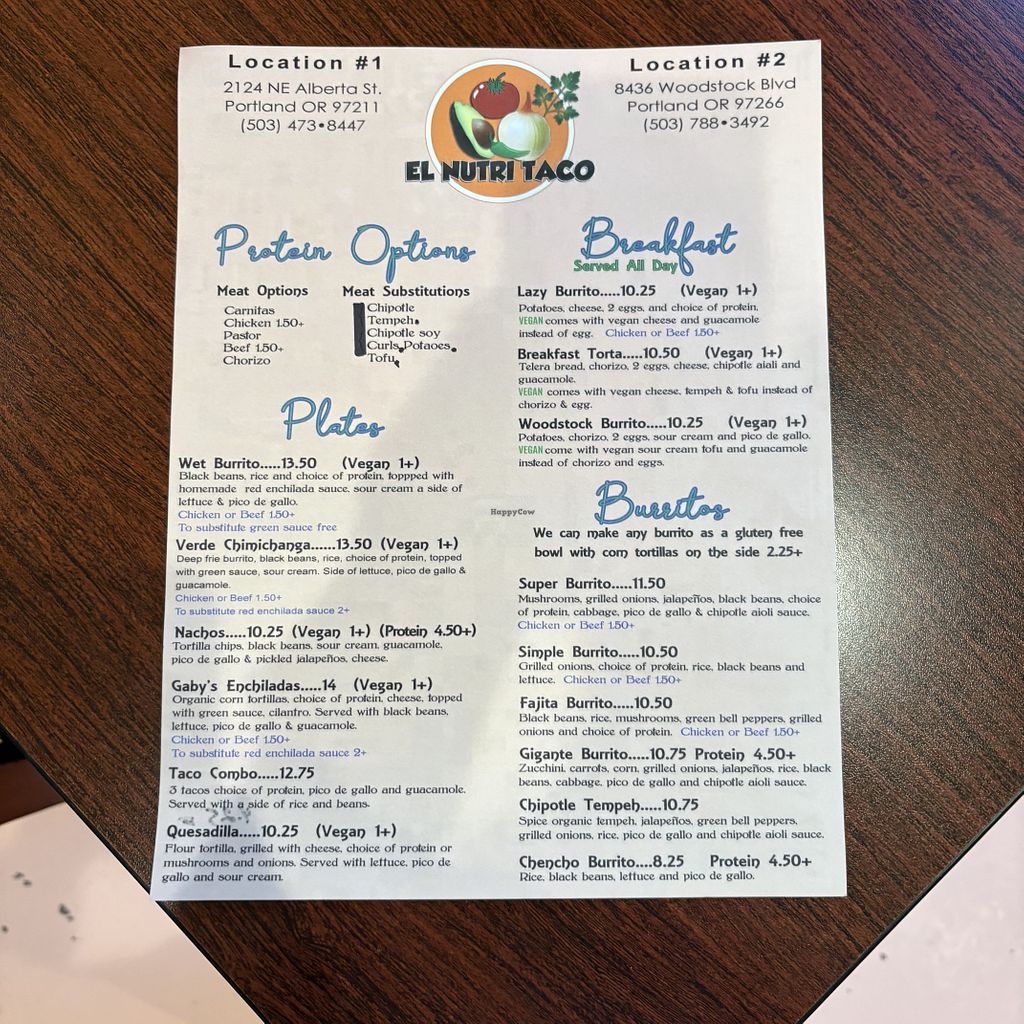 Location #1
2124 NE Alberta St.
Portland OR 97211
(503) 473•8447
EL NUTRI TACO
Location #2
8436 Woodstock Blvd
Portland OR 97266
(503) 788•3492
Protein Options
Meat Options
Carnitas
Chicken 1.50+
Pastor
Beef 1.50+
Chorizo
Meat Substitutions
Chipotle
Tempeh.
Chipotle soy
Curls,Potaoes.
Tofu,
Plates
Wet Burrito.....13.50 (Vegan 1+)
Black beans, rice and choice of protein, toppped with
homemade red enchilada sauce, sour cream a side of
lettuce & pico de gallo.
Chicken or Beef 1.50+
To substitute green sauce free
Verde Chimichanga......13.50 (Vegan 1+)
Deep frie burrito, black beans, rice, choice of protein, topped
with green sauce, sour cream. Side of lettuce, pico de gallo &
guacamole.
Chicken or Beef 1.50+
To substitute red enchilada sauce 2+
Nachos.....10.25 (Vegan 1+) (Protein 4.50+)
Tortilla chips, black beans, sour cream, guacamole,
pico de gallo & pickled jalapeños, cheese.
Gaby's Enchiladas.....14 (Vegan 1+)
Organic corn tortillas, choice of protein, cheese, topped
with green sauce, cilantro. Served with black beans,
lettuce, pico de gallo & guacamole.
Chicken or Beef 1.50+
To substitute red enchilada sauce 2+
Taco Combo.....12.75
3 tacos choice of protein, pico de gallo and guacamole.
Served with a side of rice and beans.
Quesadilla.....10.25 (Vegan 1+)
Flour tortilla, grilled with cheese, choice of protein or
mushrooms and onions. Served with lettuce, pico de
gallo and sour cream.
Breakfast
Served All Day
Lazy Burrito.....10.25 (Vegan 1+)
Potatoes, cheese, 2 eggs, and choice of protein,
VEGAN comes with vegan cheese and guacamole
instead of egg. Chicken or Beef 1.50+
Breakfast Torta.....10.50 (Vegan 1+)
Telera bread, chorizo, 2 eggs, cheese, chipotle aiali and
guacamole.
VEGAN comes with vegan cheese, tempeh & tofu instead of
chorizo & egg.
Woodstock Burrito.....10.25 (Vegan 1+)
Potatoes, chorizo, 2 eggs, sour cream and pico de gallo.
VEGAN come with vegan sour cream tofu and guacamole
instead of chorizo and eggs.
HappyCow
Burritos
We can make any burrito as a gluten free
bowl with corn tortillas on the side 2.25+
Super Burrito.....11.50
Mushrooms, grilled onions, jalapeños, black beans, choice
of protein, cabbage, pico de gallo & chipotle aioli sauce.
Chicken or Beef 1.50+
Simple Burrito.....10.50
Grilled onions, choice of protein, rice, black beans and
lettuce. Chicken or Beef 1.50+
Fajita Burrito.....10.50
Black beans, rice, mushrooms, green bell peppers, grilled
onions and choice of protein. Chicken or Beef 1.50+
Gigante Burrito.....10.75 Protein 4.50+
Zucchini, carrots, corn, grilled onions, jalapeños, rice, black
beans, cabbage, pico de gallo and chipotle aioli sauce.
Chipotle Tempeh.....10.75
Spice organic tempeh, jalapeños, green bell peppers,
grilled onions, rice, pico de gallo and chipotle aioli sauce.
Chencho Burrito....8.25 Protein 4.50+
Rice, black beans, lettuce and pico de gallo.